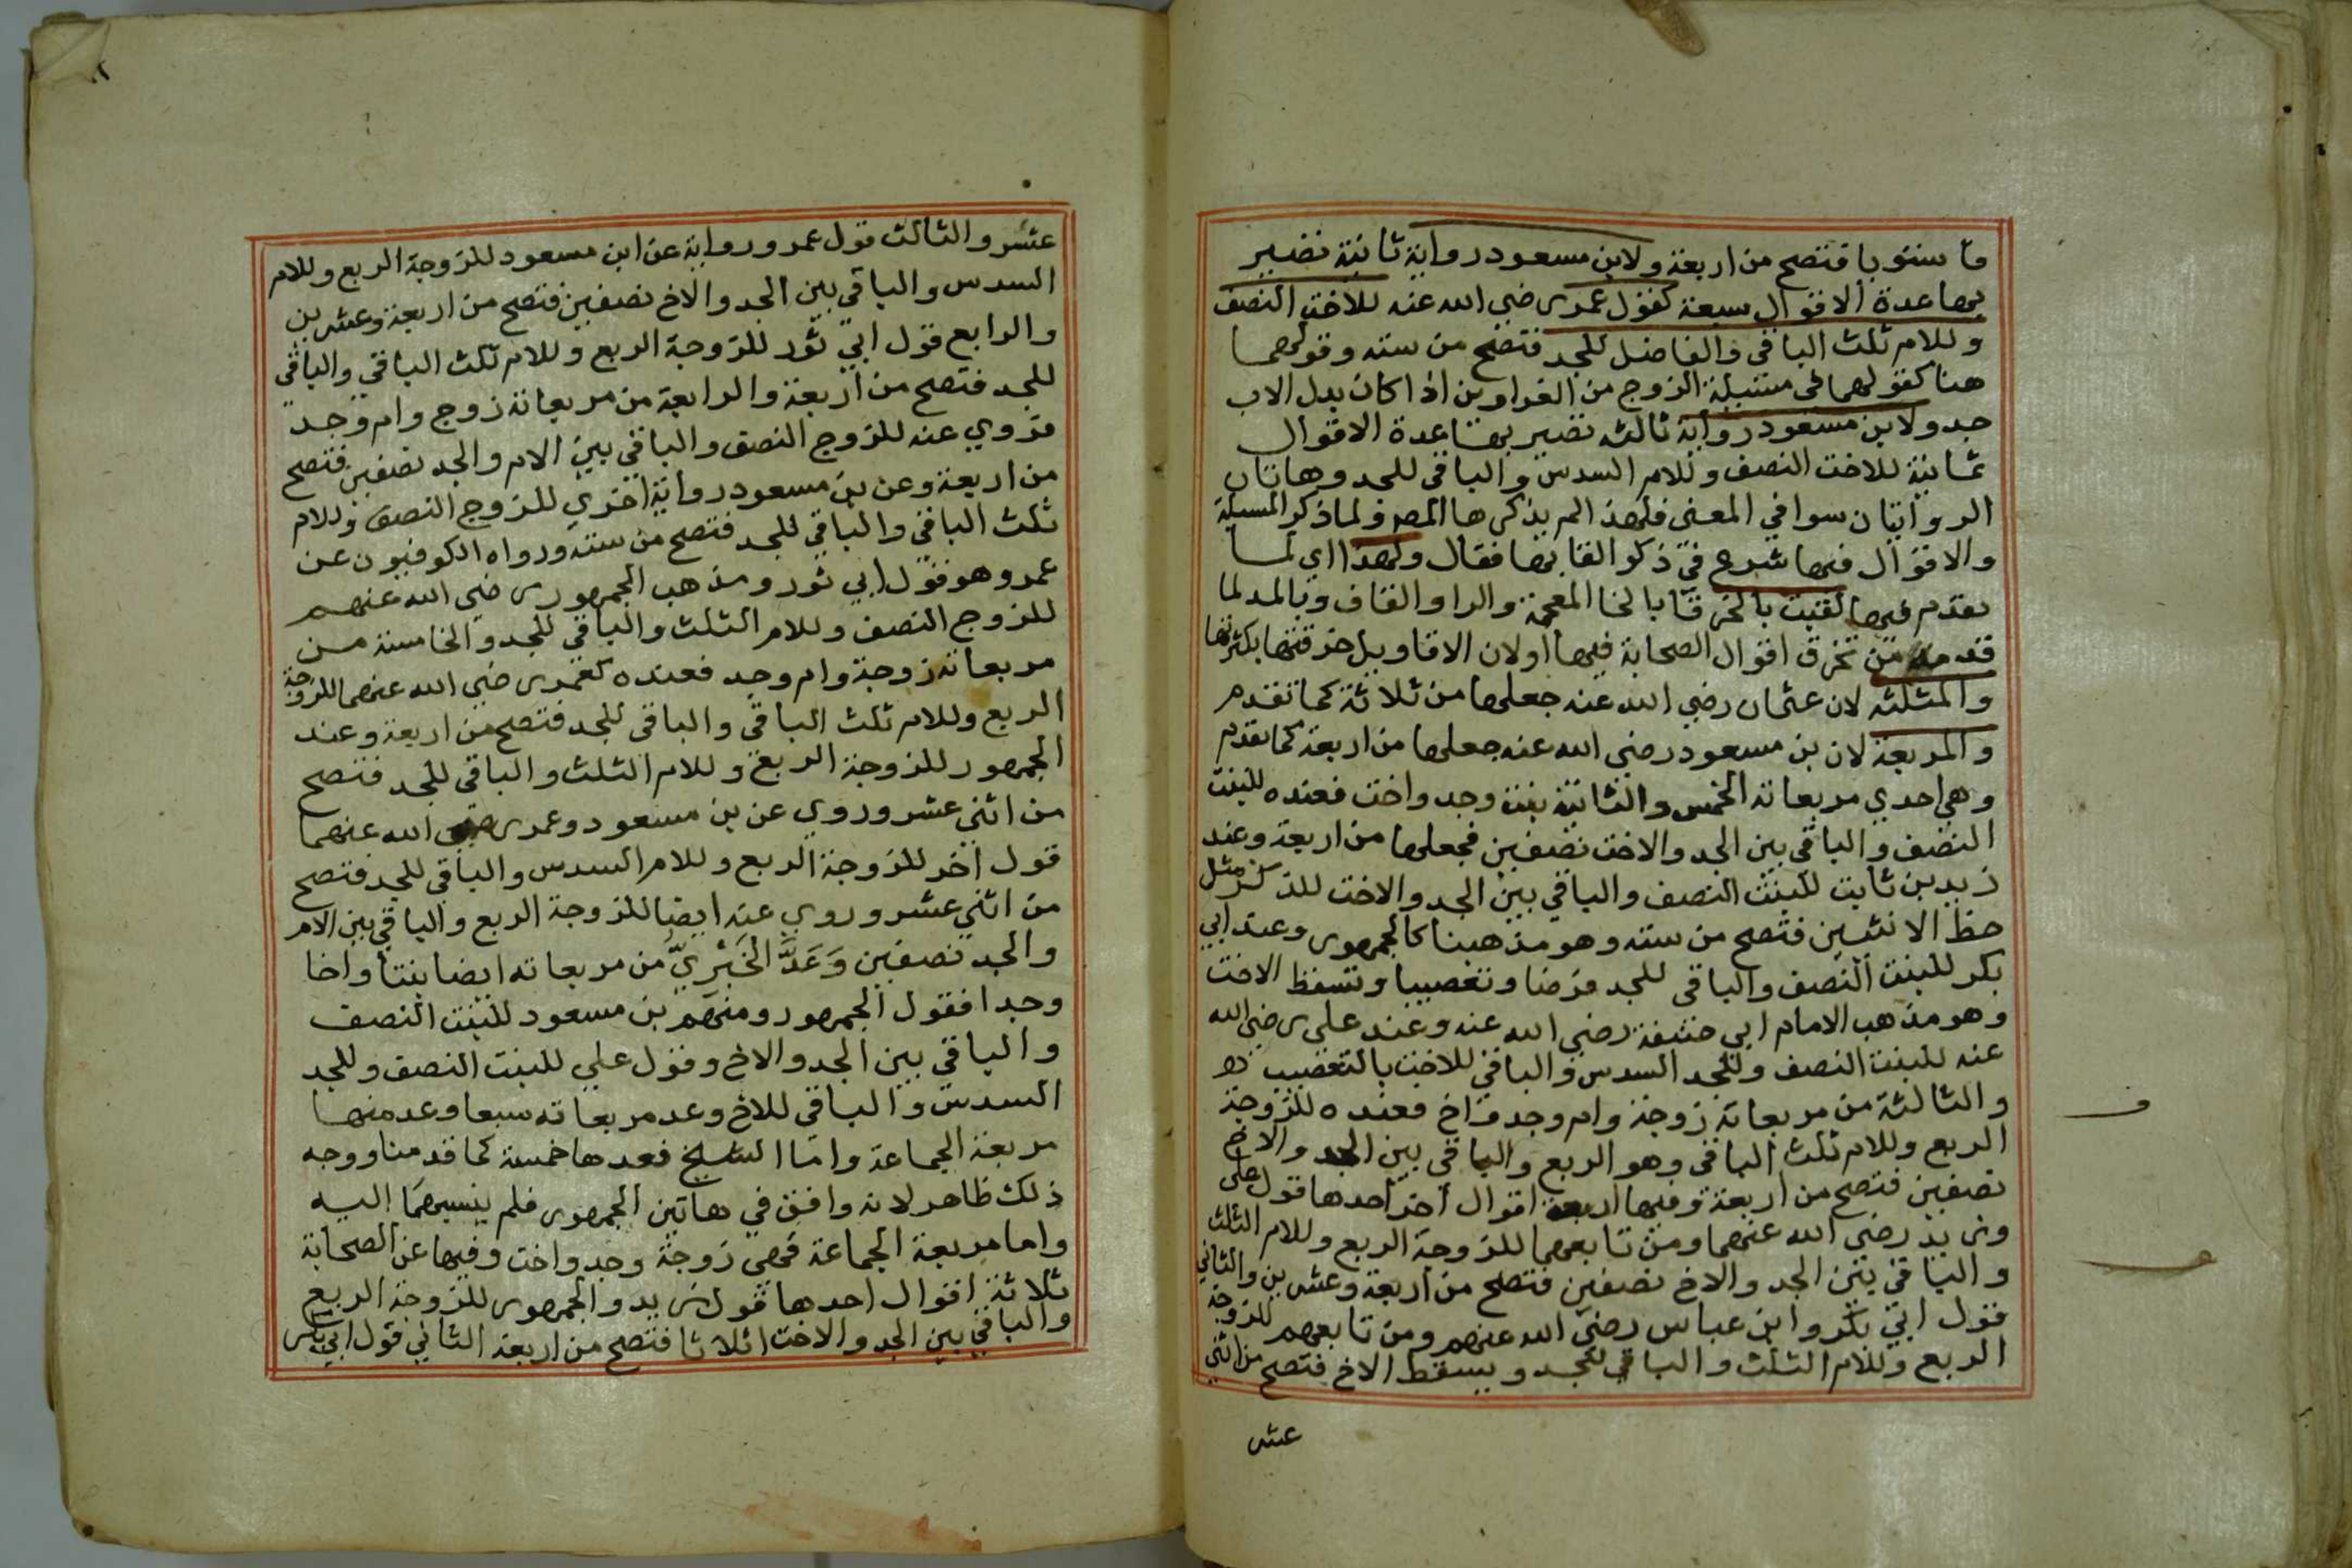 ما سنويا فتصح من اربعة ولابن مسعود رواية ثانية تصير
بهاعدة الاقوال سبعة كقول عمر رضي الله عنه للاخت النصف
وللام ثلث الباقي والفاضل للجد فتصح من سته وقولهما
هنا كقولهما في مسئلة الزوج من الغراوين اذا كان بدل الاب
جد ولابن مسعود رواية ثالثه تصير بها عدة الاقوال
ثمانية للاخت النصف وللام السدس والباقي للجد وهاتان
الروايتان سوا في المعنى فلهذا لم يذكرها المص ولما ذكر المسيلة
والاقوال فيها شرع في ذكر القابها فقال ولهذا اي لما
تقدم فيها لقبت بالخرقا بالخا المعجمة والرا والقاف وبالمد لما
قدمه من تخرق اقوال الصحابة فيها اولان الاقاويل خرقتها بكثرتها
والمثلثه لان عثمان رضي الله عنه جعلها من ثلاثة كما تقدم
والمربعة لان بن مسعود رضي الله عنه جعلها من اربعة كما تقدم
وهي احدي مربعاته الخمس والثانية بنت وجد واخت فعنده للبنت
النصف والباقي بين الجد والاخت نصفين فجعلها من اربعة وعند
زيد بن ثابت للبنت النصف والباقي بين الجد والاخت للذكر مثل
حظ الانثيين فتصح من سته وهو مذهبنا كالجمهور وعند ابي
بكر للبنت النصف والباقي للجد فرضا وتعصيبا وتسقط الاخت
وهو مذهب الامام ابي حنيفة رضي الله عنه وعند علي رضي الله
عنه للبنت النصف وللجد السدس والباقي للاخت بالتعصيب
والثالثة من مربعاته زوجة وام وجد واخ فعنده للزوجة
الربع وللام ثلث الباقي وهو الربع والباقي بين الجد والاخ
نصفين فتصح من اربعة وفيها اربعة اقوال اخر احدها قول علي
وزيد رضي الله عنهما ومن تابعهما للزوجة الربع وللام الثلث
والباقي بين الجد والاخ نصفين فتصح من اربعة وعشرين والثاني
قول ابي بكر وابن عباس رضي الله عنهم ومن تابعهم للزوجة
الربع وللام الثلث والباقي للجد ويسقط الاخ فتصح من اثني
عشر
عشر والثالث قول عمر ورواية عن ابن مسعود للزوجة الربع وللام
السدس والباقي بين الجد والاخ نصفين فتصح من اربعة وعشرين
والرابع قول ابي ثور للزوجة الربع وللام ثلث الباقي والباقي
للجد فتصح من اربعة والرابعة من مربعاته زوج وام وجد
فروي عنه للزوج النصف والباقي بين الام والجد نصفين فتصح
من اربعة وعن بن مسعود رواية اخري للزوج النصف وللام
ثلث الباقي والباقي للجد فتصح من سته ورواه الكوفيون عن
عمر وهو قول ابي ثور ومذهب الجمهور رضي الله عنهم
للزوج النصف وللام الثلث والباقي للجد والخامسة من
مربعاته زوجة وام وجد فعنده كعمر رضي الله عنهما للزوجة
الربع وللام ثلث الباقي والباقي للجد فتصح من اربعة وعند
الجمهور للزوجة الربع وللام الثلث والباقي للجد فتصح
من اثني عشر وروي عن بن مسعود وعمر رضي الله عنهما
قول اخر للزوجة الربع وللام السدس والباقي للجد فتصح
من اثني عشر وروي عنه ايضا للزوجة الربع والباقي بين الام
والجد نصفين وَعَدَّ الخَبْرِيُّ من مربعاته ايضا بنتا واخا
وجدا فقول الجمهور ومنهم بن مسعود للبنت النصف
والباقي بين الجد والاخ وقول علي للبنت النصف وللجد
السدس والباقي للاخ وعد مربعاته سبعا وعد منها
مربعة الجماعة واما الشيخ فعدها خمسة كما قدمنا ووجه
ذلك ظاهر لانه وافق في هاتين الجمهور فلم ينسبهما اليه
واما مربعة الجماعة فهي زوجة وجد واخت وفيها عن الصحابة
ثلاثة اقوال احدها قول زيد والجمهور للزوجة الربع
والباقي بين الجد والاخت اثلاثا فتصح من اربعة الثاني قول ابي بكر